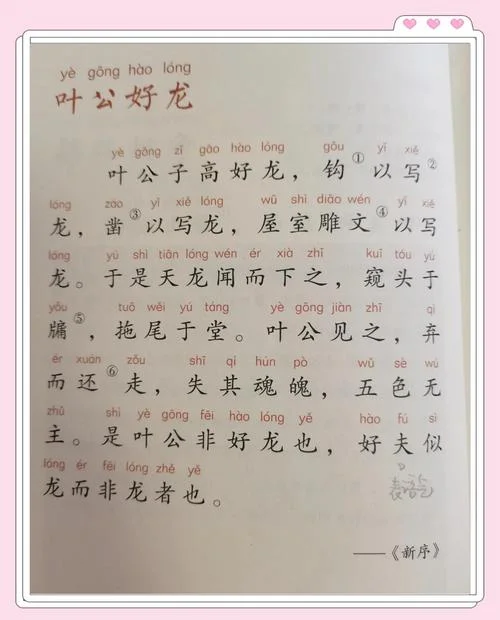 yè gōng hào lóng
叶公好龙
yè gōng zǐ gāo hào lóng gōu yǐ xiě
叶公子高好龙，钩①以写②
lóng záo yǐ xiě lóng wū shì diāo wén yǐ xiě
龙，凿③以写龙，屋室雕文④以写
lóng yú shì tiān lóng wén ér xià zhī kuī tóu yú
龙。于是天龙闻而下之，窥头于
yǒu tuō wěi yú táng yè gōng jiàn zhī qì
牖⑤，拖尾于堂。叶公见之，弃
ér xuán zǒu shī qí hún pò wǔ sè wú
而还⑥走，失其魂魄，五色无
zhǔ shì yè gōng fēi hào lóng yě hào fú sì
主。是叶公非好龙也，好夫似
lóng ér fēi lóng zhě yě
龙而非龙者也。
——《新序》